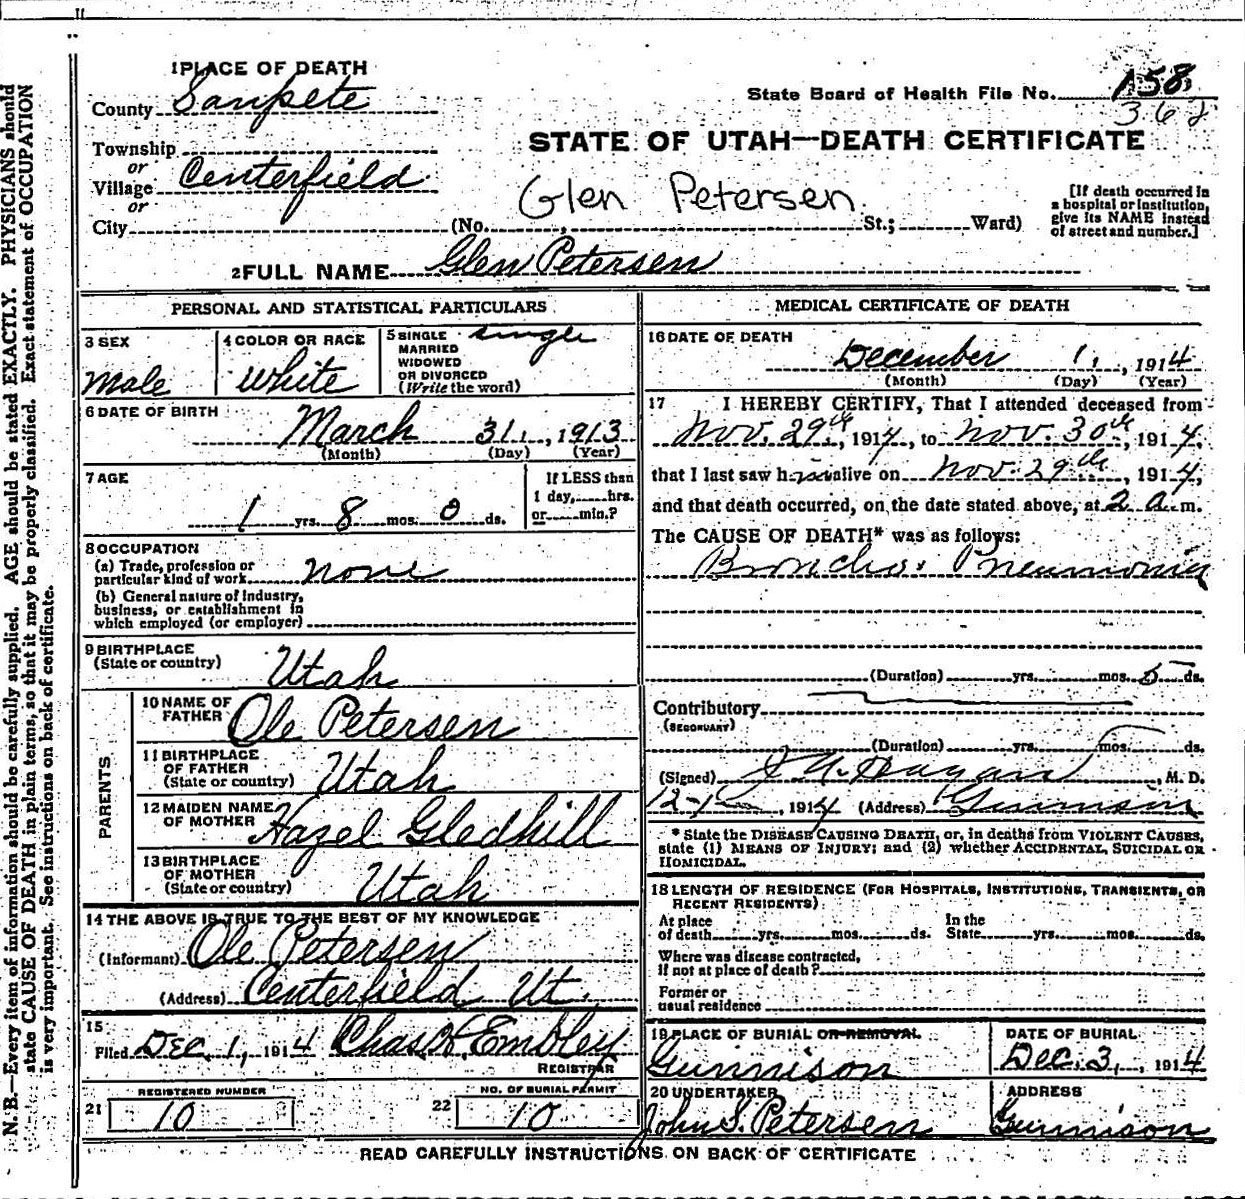 1 PLACE OF DEATH
County Sanpete
State Board of Health File No. 158
368
Township
or
Village Centerfield
or
City
STATE OF UTAH—DEATH CERTIFICATE
Glen Petersen
(No. , St.; Ward)
[If death occurred in
a hospital or institution,
give its NAME instead
of street and number.]
2 FULL NAME Glen Petersen
PERSONAL AND STATISTICAL PARTICULARS
3 SEX
Male
4 COLOR OR RACE
White
5 SINGLE
MARRIED
WIDOWED
OR DIVORCED
(Write the word)
single
6 DATE OF BIRTH
March 31, 1913
(Month) (Day) (Year)
7 AGE
1 yrs. 8 mos. 0 ds.
If LESS than
1 day, hrs.
or min.?
8 OCCUPATION
(a) Trade, profession or
particular kind of work none
(b) General nature of Industry,
business, or establishment in
which employed (or employer)
9 BIRTHPLACE
(State or country) Utah
PARENTS
10 NAME OF
FATHER Ole Petersen
11 BIRTHPLACE
OF FATHER
(State or country) Utah
12 MAIDEN NAME
OF MOTHER Hazel Gledhill
13 BIRTHPLACE
OF MOTHER
(State or country) Utah
14 THE ABOVE IS TRUE TO THE BEST OF MY KNOWLEDGE
(Informant) Ole Petersen
(Address) Centerfield Ut.
15
Filed Dec. 1, 1914 Chas. H. Embley
REGISTRAR
REGISTERED NUMBER
21 10
NO. OF BURIAL PERMIT
22 10
MEDICAL CERTIFICATE OF DEATH
16 DATE OF DEATH
December 1, 1914
(Month) (Day) (Year)
17 I HEREBY CERTIFY, That I attended deceased from
Nov. 29th, 1914, to Nov. 30th, 1914,
that I last saw him alive on Nov. 29th, 1914,
and that death occurred, on the date stated above, at 2 a. m.
The CAUSE OF DEATH* was as follows:
Broncho. Pneumonia
(Duration) yrs. mos. 5 ds.
Contributory
(SECONDARY)
(Duration) yrs. mos. ds.
(Signed) , M. D.
12-1, 1914 (Address) Gunnison
* State the DISEASE CAUSING DEATH, or, in deaths from VIOLENT CAUSES,
state (1) MEANS OF INJURY; and (2) whether ACCIDENTAL, SUICIDAL OR
HOMICIDAL.
18 LENGTH OF RESIDENCE (FOR HOSPITALS, INSTITUTIONS, TRANSIENTS, OR
RECENT RESIDENTS)
At place
of death yrs. mos. ds.
In the
State yrs. mos. ds.
Where was disease contracted,
if not at place of death?
Former or
usual residence
19 PLACE OF BURIAL OR REMOVAL
Gunnison
DATE OF BURIAL
Dec. 3, 1914
20 UNDERTAKER
John S. Petersen
ADDRESS
Gunnison
READ CAREFULLY INSTRUCTIONS ON BACK OF CERTIFICATE
N. B.—Every item of information should be carefully supplied. AGE should be stated EXACTLY. PHYSICIANS should
state CAUSE OF DEATH in plain terms, so that it may be properly classified. Exact statement of OCCUPATION
is very important. See instructions on back of certificate.